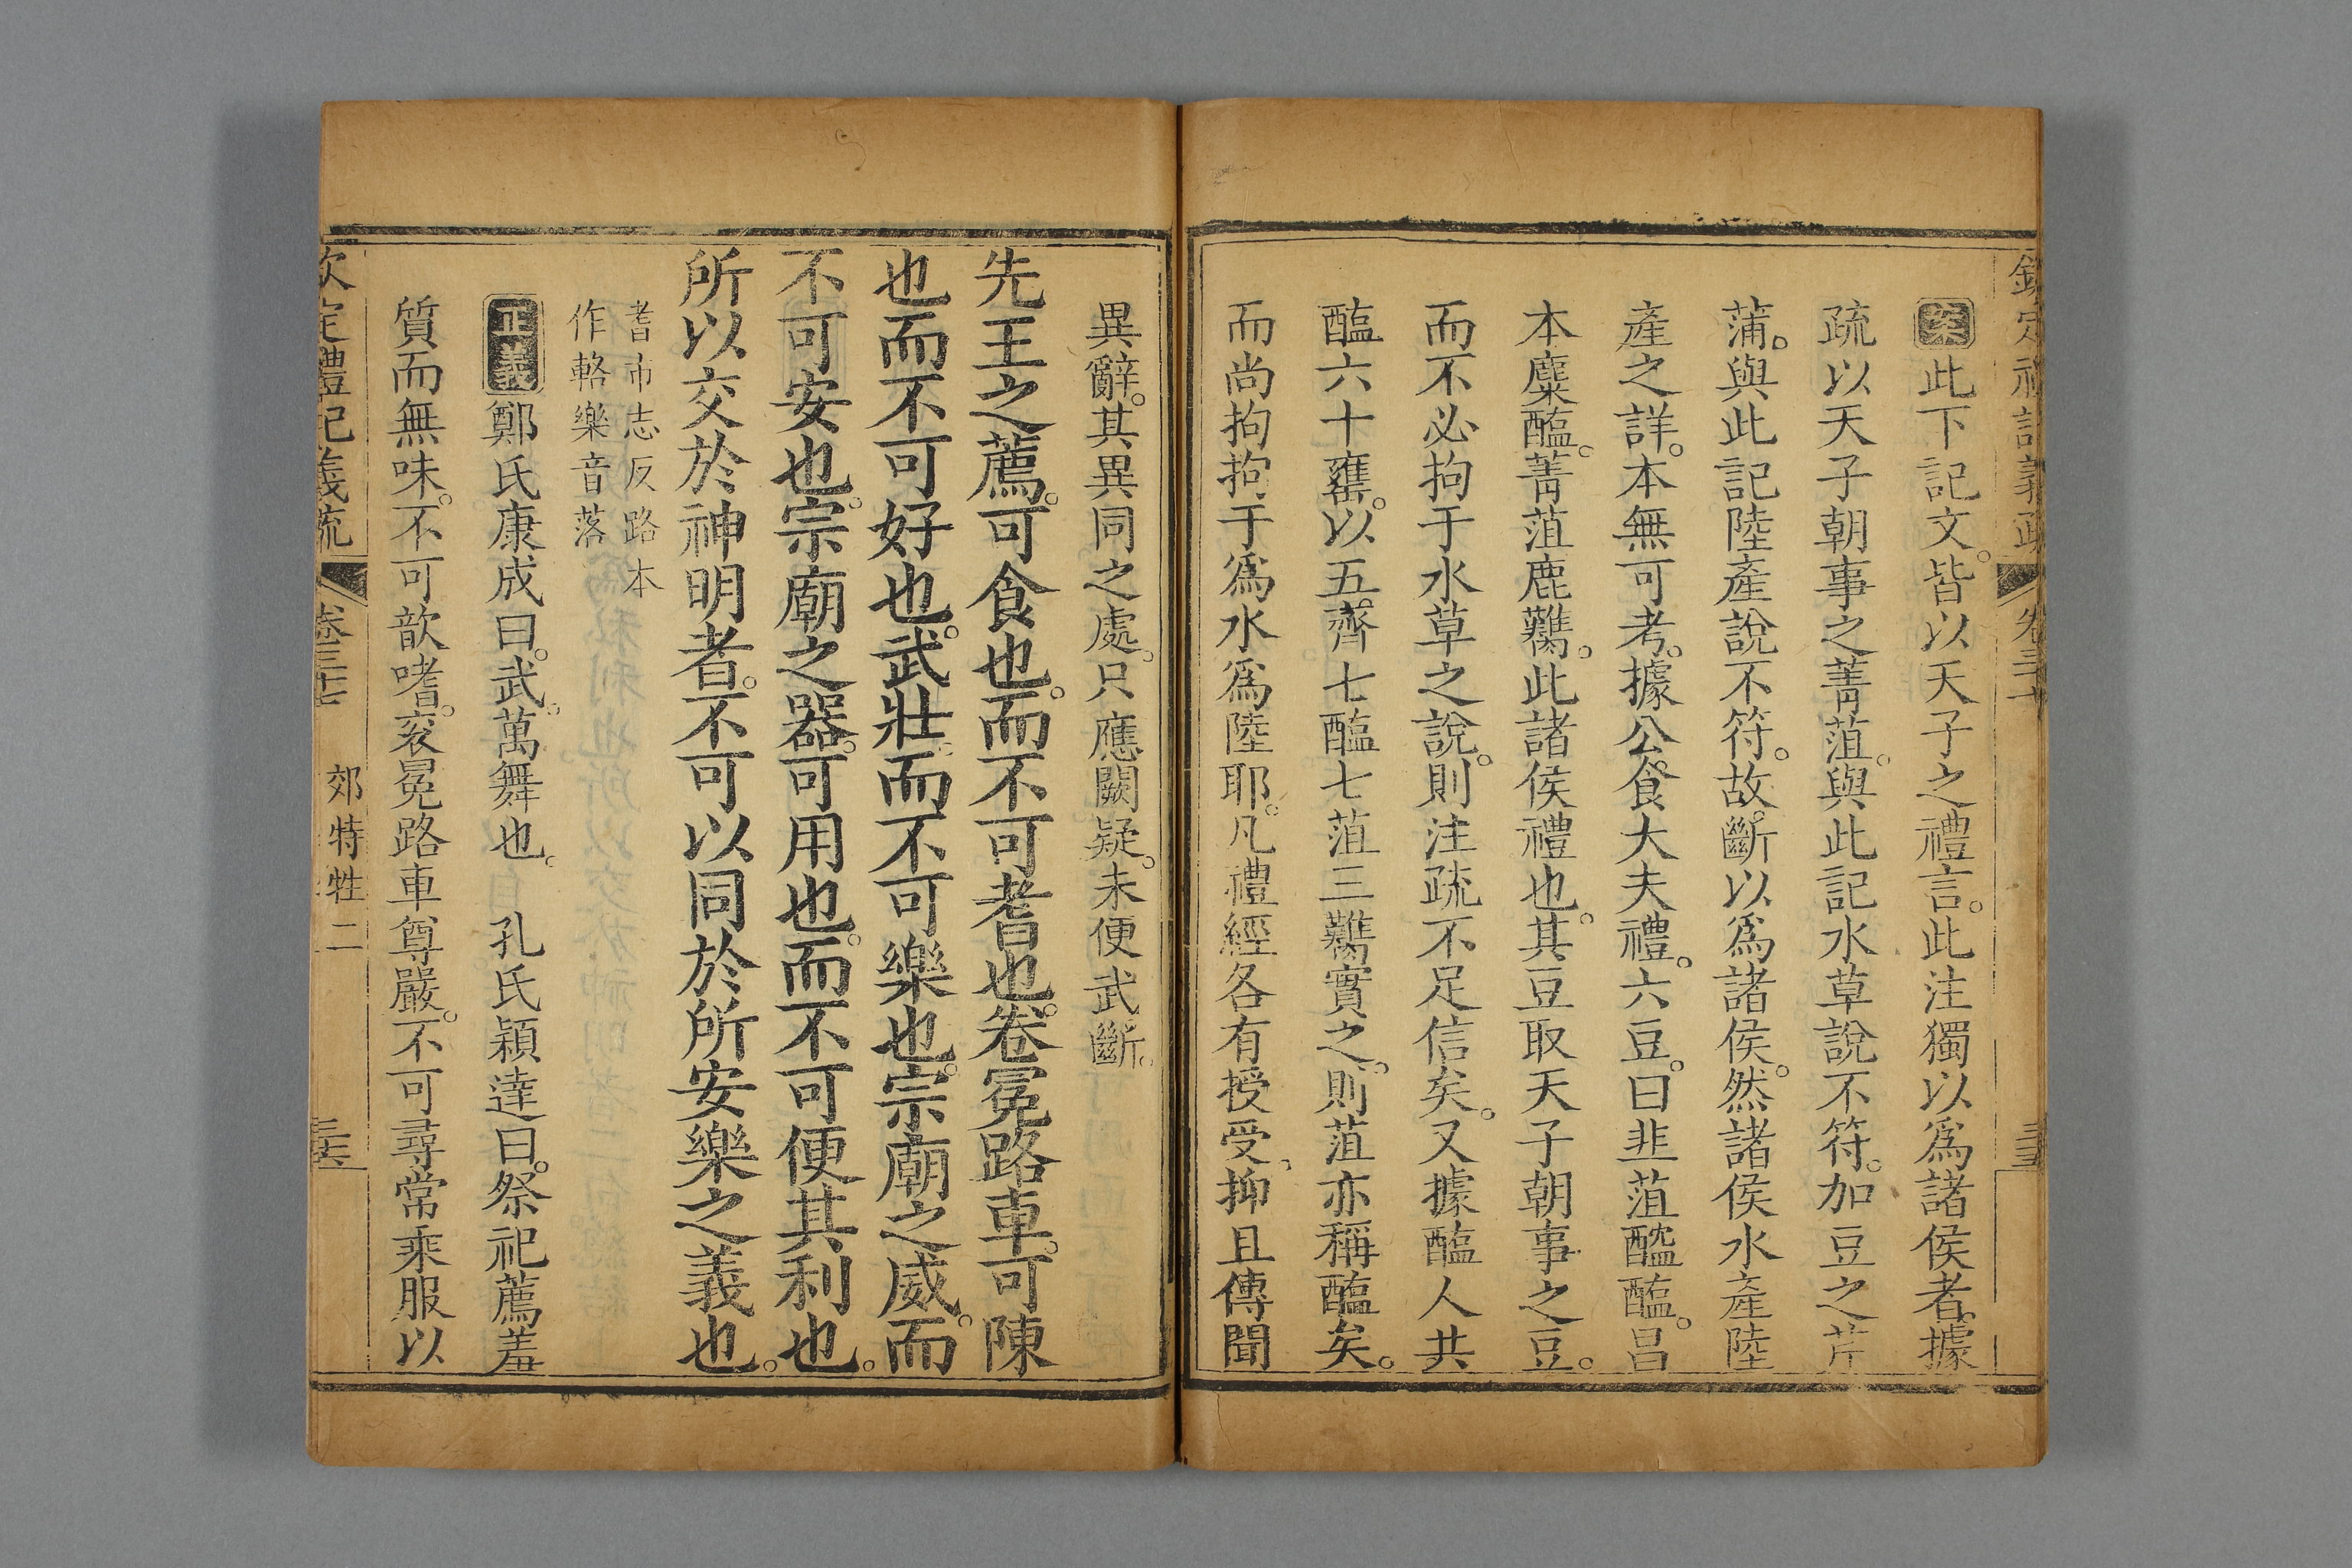 案此下記文。皆以天子之禮言。此注獨以爲諸侯者。據
疏以天子朝事之菁菹。與此記水草說不符。加豆之芹
蒲。與此記陸產說不符。故斷以爲諸侯。然諸侯水產陸
產之詳。本無可考。據公食大夫禮。六豆。曰韭菹醓醢。昌
本麋醢。菁菹鹿臡。此諸侯禮也。其豆取天子朝事之豆。
而不必拘于水草之說。則注疏不足信矣。又據醢人共
醢六十罋。以五齊七醢七菹三臡實之。則菹亦稱醢矣。
而尚拘拘于爲水爲陸耶。凡禮經各有授受、抑且傳聞
異辭。其異同之處。只應闕疑。未便武斷。
先王之薦。可食也。而不可耆也。卷冕路車。可陳
也而不可好也。武壯而不可樂也。宗廟之威。而
不可安也。宗廟之器。可用也。而不可便其利也。
所以交於神明者。不可以同於所安樂之義也。
耆市志反路本
作輅樂音落
正義鄭氏康成曰。武。萬舞也。 孔氏穎達曰。祭祀薦羞
質而無味。不可歆嗜。衮冕路車尊嚴。不可尋常乘服以
欽定禮記義疏 卷三十七 郊特牲二